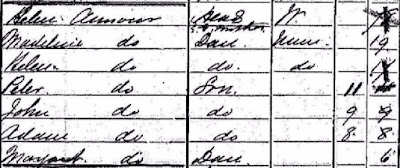 Helen Armour Head W
Madeline do Dau Unm 19
Helen do do do
Peter do Son 11
John do do 9 9
Adam do do 8 8
Margart do Dau 6